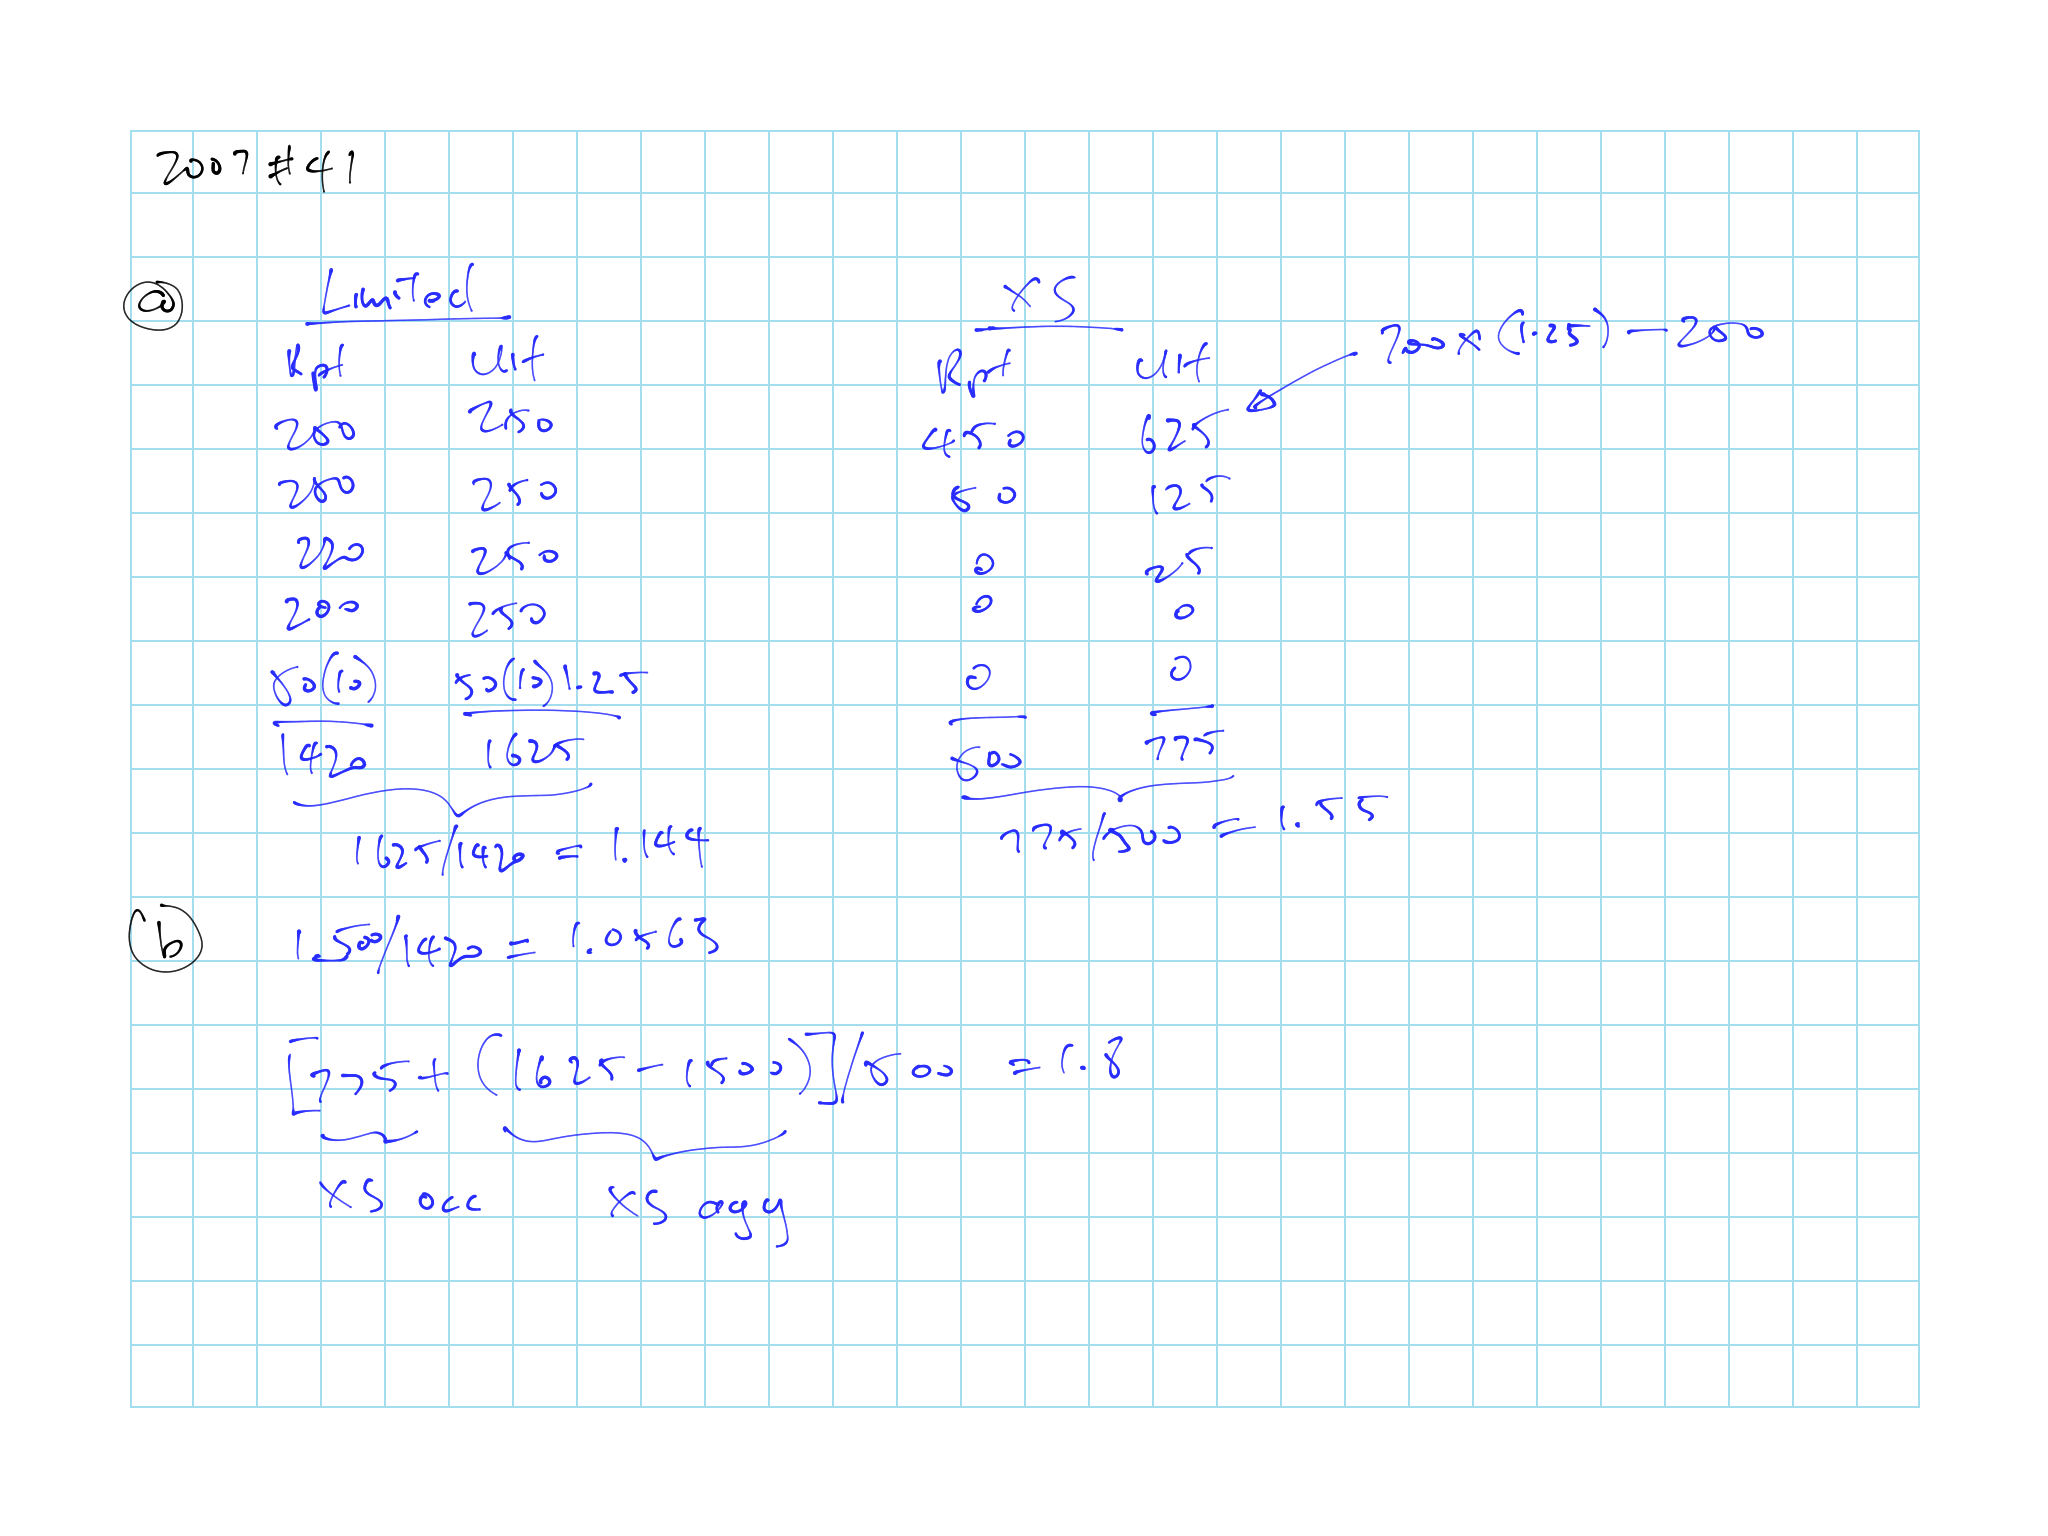 2007 #41
(a) Limited XS
Rpt Ult Rpt Ult 700 x (1.25) - 250
250 250 450 625
250 250 50 125
220 250 0 25
200 250 0 0
50(10) 50(10)1.25 0 0
1420 1625 500 775
1625/1420 = 1.144 775/500 = 1.55
(b) 1500/1420 = 1.0563
[775 + (1625 - 1500)]/500 = 1.8
XS occ XS agg